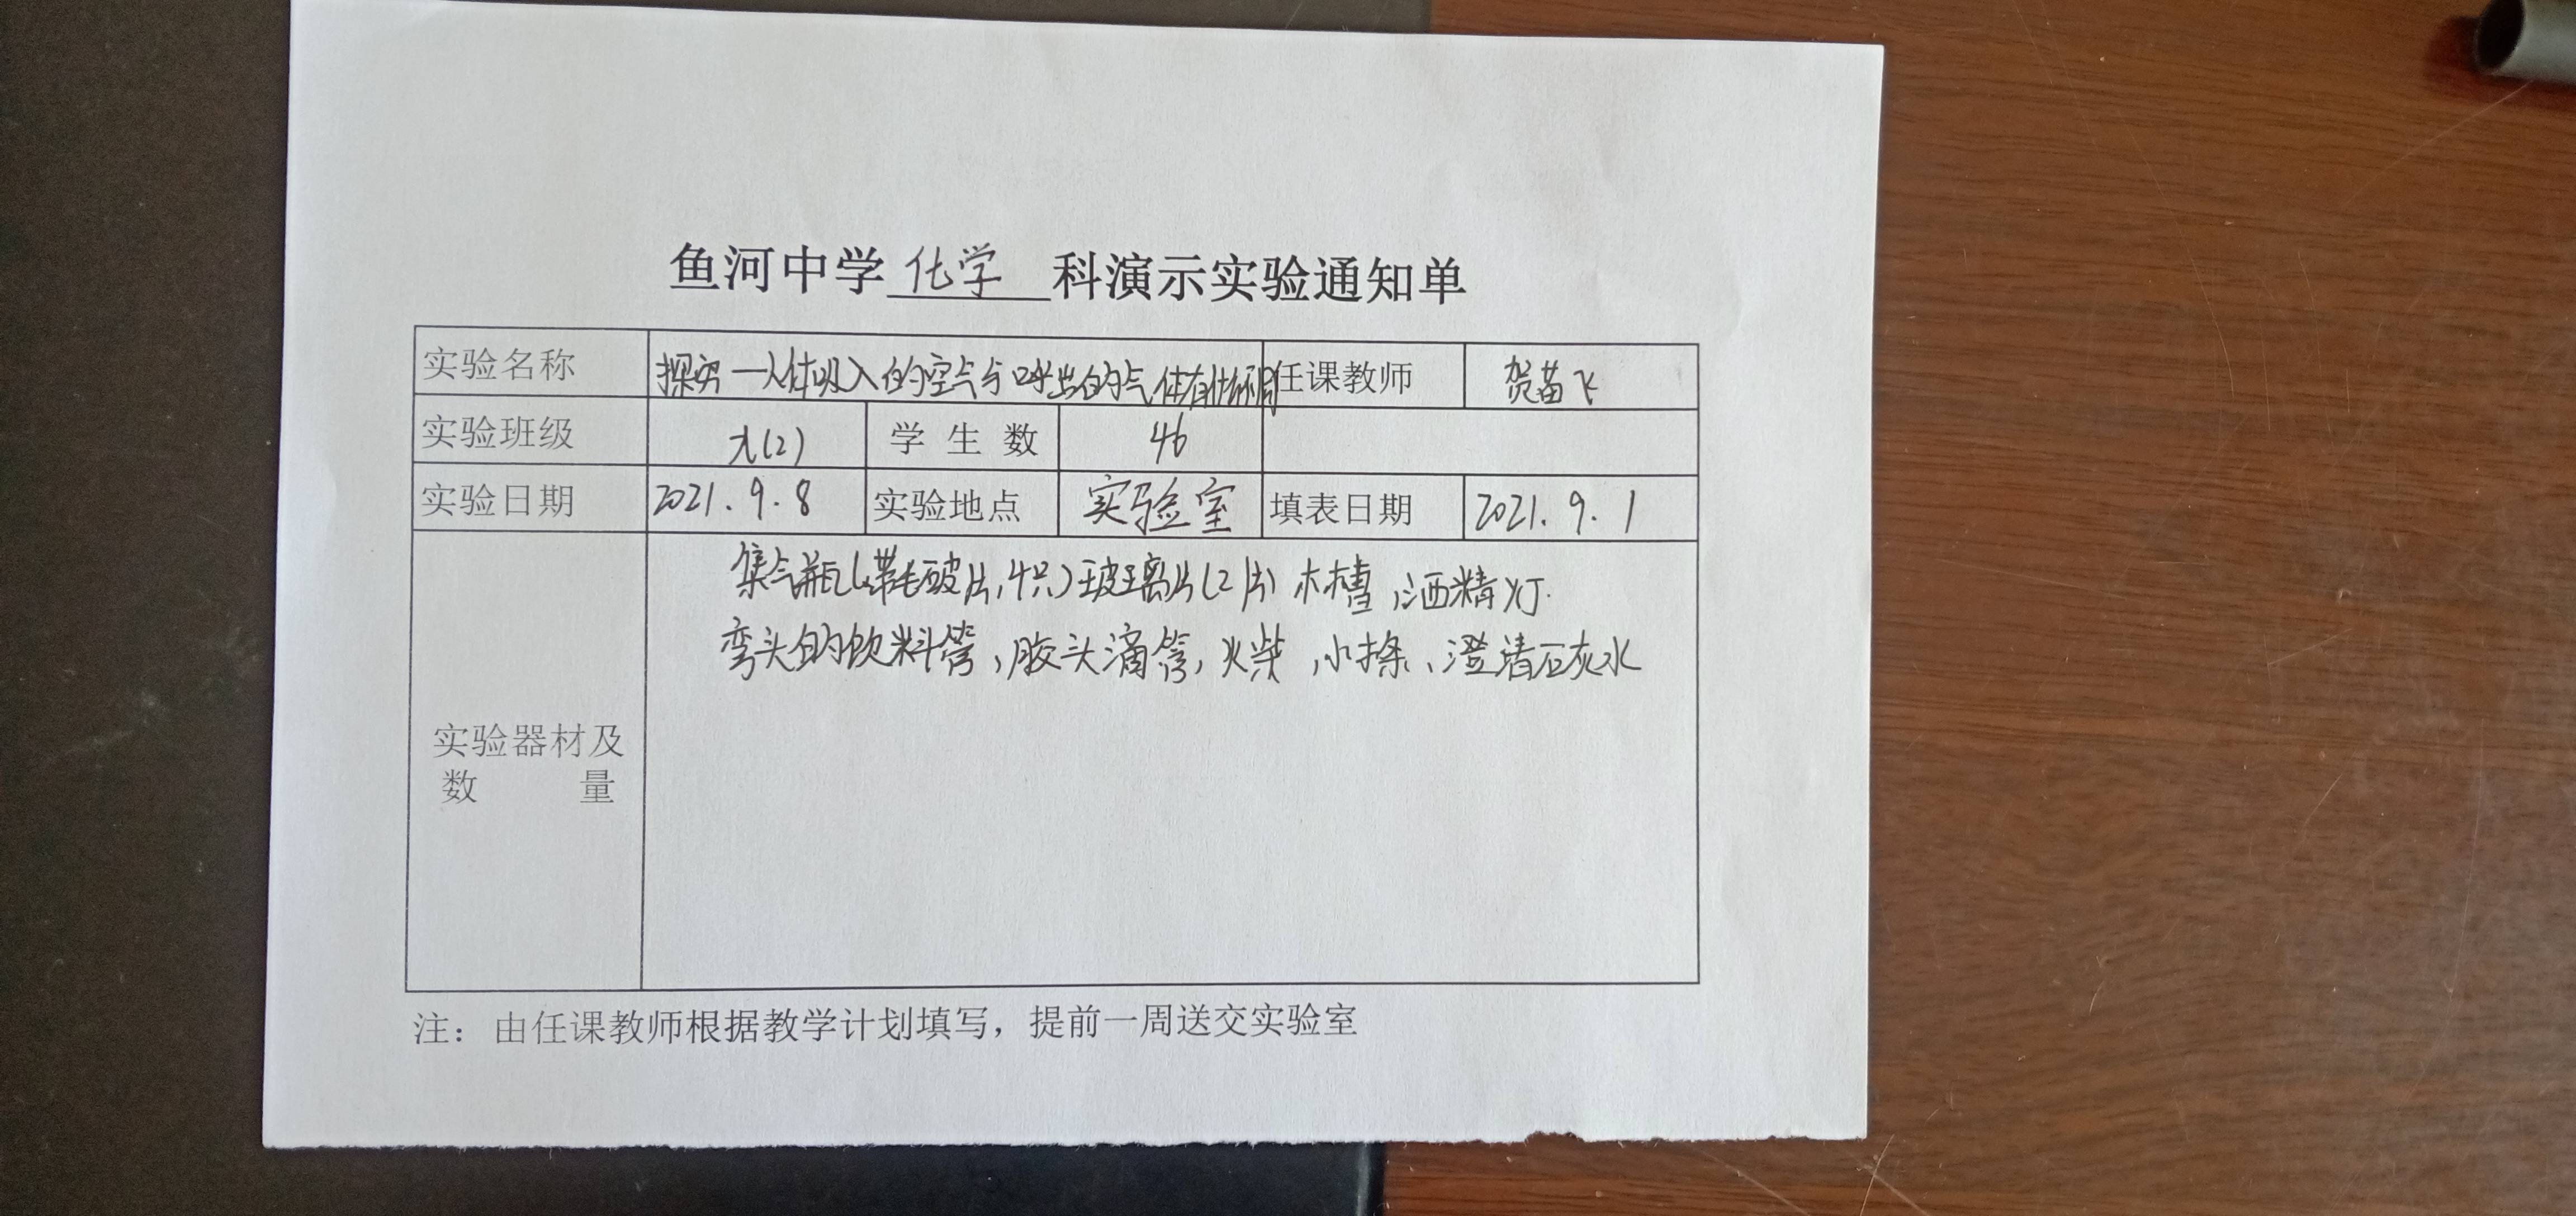 鱼河中学化学科演示实验通知单
实验名称 探究一人体吸入的空气与呼出的气体有什么不同 任课教师 贺苗飞
实验班级 九(2) 学生数 46
实验日期 2021.9.8 实验地点 实验室 填表日期 2021.9.1
集气瓶(带毛玻片,4只)玻璃片(2片) 水槽,酒精灯.
弯头的饮料管,胶头滴管,火柴,小木条、澄清石灰水
实验器材及
数量
注：由任课教师根据教学计划填写，提前一周送交实验室